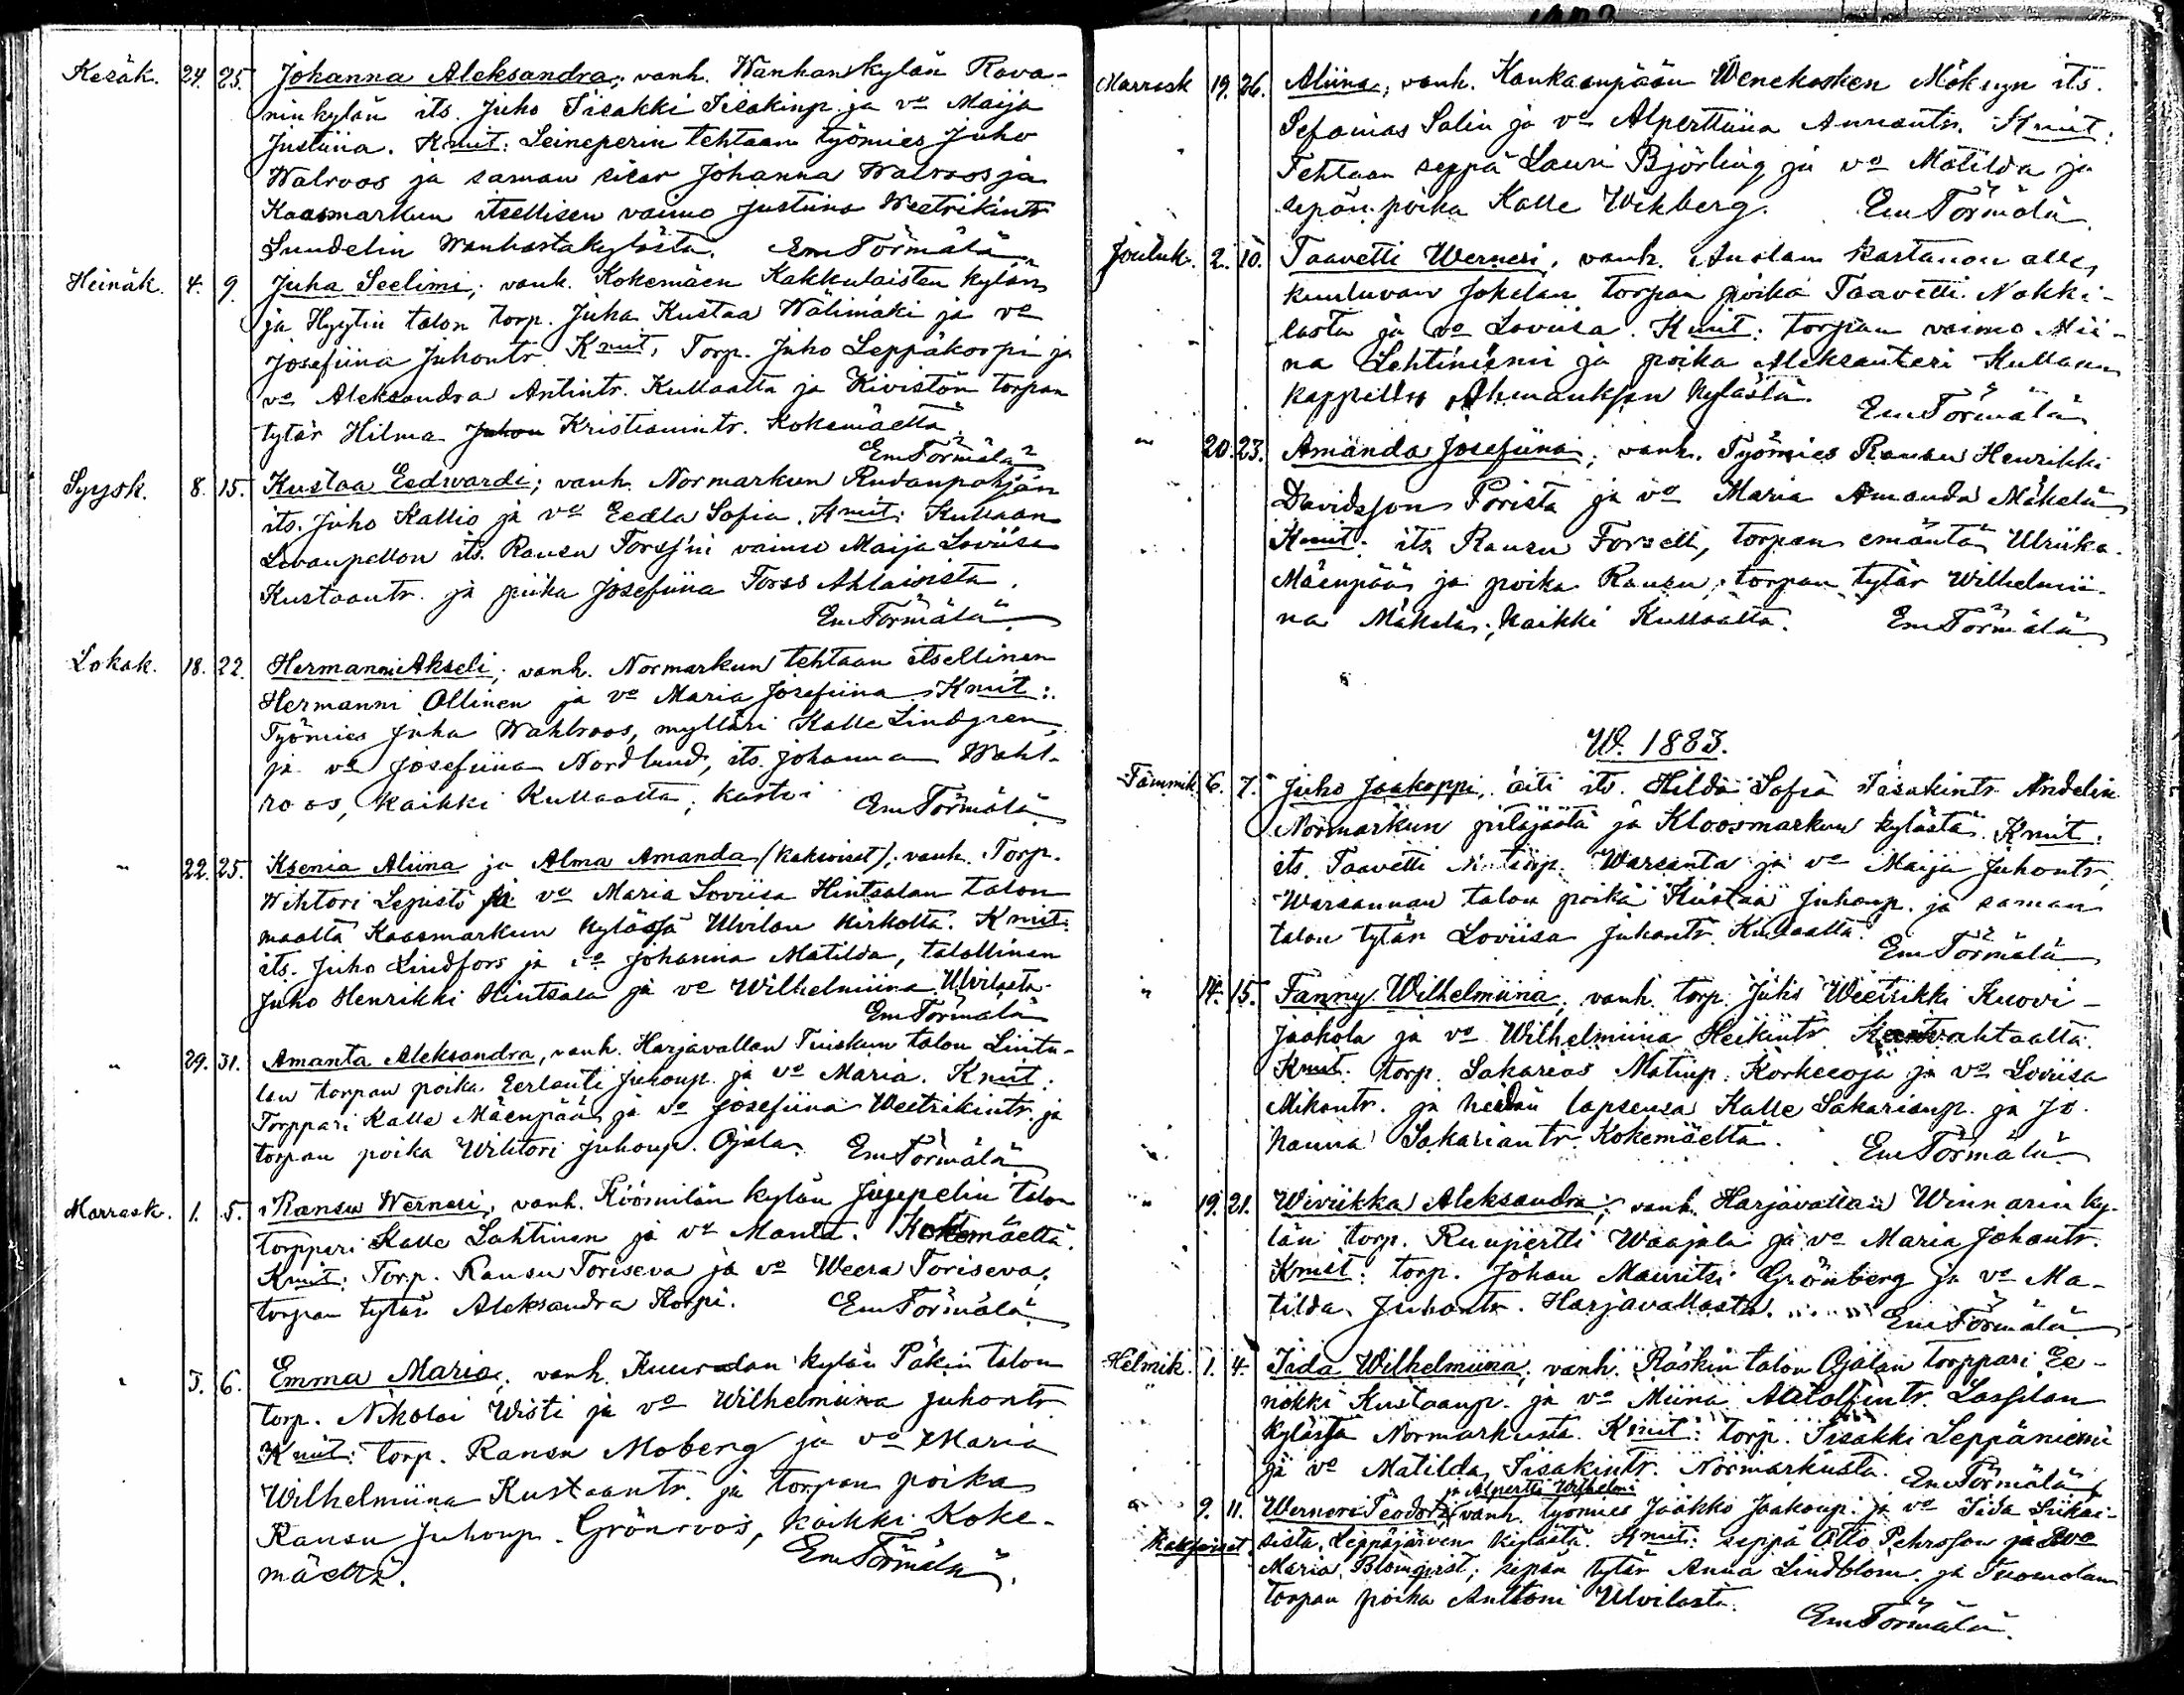 Kesäk. 24. 25. Johanna Aleksandra; vanh. Wanhankylän Rava-
ninkylän its. Juho Iisakki Iisakinp. ja vo Maija
Justiina. Kmit: Leineperin tehtaan työmies Juho
Walroos ja saman sisar Johanna Walroos ja
Kaasmarkun itsellisen vaimo Justiina Weetrikintr
Sundelin Wanhastakylästä. Em Törmälä
Heinäk. 4. 9. Juha Seelimi; vanh. Kokemäen Kakkulaisten kylän
ja Hyytin talon torp. Juha Kustaa Wälimäki ja vo
Josefiina Juhontr. Kmit. Torp. Juho Leppäkorpi ja
vo Aleksandra Antintr. Kullaalta ja Kivistön torpan
tytär Hilma Juhon Kristianintr. Kokemäeltä.
Em Törmälä
Syysk. 8. 15. Kustaa Eedwardi; vanh. Normarkun Rudanpohjan
its. Juho Kallio ja vo Eedla Sofia. Kmit: Kullaan
Levanpellon its. Ransu Forss'in vaimo Maija Loviisa
Kustaantr. ja piika Josefiina Forss Ahlaisista.
Em Törmälä
Lokak. 18. 22. Hermanni Akseli; vanh. Normarkun tehtaan itsellinen
Hermanni Ollinen ja vo Maria Josefiina. Kmit:
Työmies Juha Wahlroos, mylläri Kalle Lindgren
ja vo Josefiina Nordlund, its. Johanna Wahl-
roos, kaikki Kullaalta; kastoi Em Törmälä
" 22. 25. Ksenia Aliina ja Alma Amanda (kaksoiset); vanh. Torp.
Wihtori Lepistö ja vo Maria Loviisa Hintsalan talon
maalta Kaasmarkun kylässä Ulvilan kirkolta. Kmit:
its. Juho Lindfors ja vo Johanna Matilda, talollinen
Juho Henrikki Hintsala ja vo Wilhelmiina Ulvilasta.
Em Törmälä
" 29. 31. Amanta Aleksandra, vanh. Harjavallan Tuiskun talon Lintu-
lan torpan poika Eerlanti Juhonp. ja vo Maria. Kmit:
Torppari Kalle Mäenpää ja vo Josefiina Weetrikintr. ja
torpan poika Wihtori Juhonp. Ojala. Em Törmälä
Marrask. 1. 5. Ransu Werneri, vanh. Köömilän kylän Juupelin talon
torppari Kalle Lahtinen ja vo Manta. Kokemäeltä.
Kmit: Torp. Ransu Toriseva ja vo Weera Toriseva,
torpan tytär Aleksandra Korpi. Em Törmälä
" 3. 6. Emma Maria; vanh. Kuurolan kylän Päkin talon
torp. Nikolai Wisti ja vo Wilhelmiina Juhontr
Kmit: torp. Ransu Moberg ja vo Maria
Wilhelmiina Kustaantr. ja torpan poika
Ransu Juhonp. Grönroos, kaikki Koke-
mäeltä. Em Törmälä.
Marrask 19. 26. Aliina; vanh. Kankaanpään Wenekosken Mäkuyn its.
Sefanias Salin ja vo Alperttiina Annantr. Kmit:
Tehtaan seppä Lauri Björling ja vo Matilda ja
sepän poika Kalle Wikberg. Em Törmälä.
Jouluk. 2. 10. Taavetti Werneri, vanh. Anolan kartanon alle
kuuluvan Jokelan torpan poika Taavetti Nokki-
lasta ja vo Loviisa. Kmit: torpan vaimo Mii-
na Lehtiniemi ja poika Aleksanteri Kullaan
kappelin Ahmauksen kylästä. Em Törmälä
" 20. 23. Amanda Josefiina; vanh. Työmies Ransu Henrikki
Davidsson Porista ja vo Maria Amanda Mäkelä
Kmit: its Ransu Forsell, torpan emäntä Ulriika
Mäenpää ja poika Ransu, torpan tytär Wilhelmii-
na Mäkelä; kaikki Kullaalta. Em Törmälä
W. 1883.
Tammik. 6. 7. Juho Jaakoppi, äiti its. Hilda Sofia Iisakintr Andelin
Normarkun pitäjästä ja Kloosmarkun kylästä. Kmit:
its. Taavetti Warsanta ja vo Maija Juhontr,
Warsannan talon poika Kustaa Juhonp. ja saman
talon tytär Loviisa Juhontr. Kullaalta. Em Törmälä
" 14. 15. Fanny Wilhelmiina; vanh. torp. Juho Weetrikki Kuovi-
Jaakola ja vo Wilhelmiina Heikintr
Kmit: torp. Sakarias Matinp. Korkeeoja ja vo Loviisa
Mikontr. ja heidän lapsensa Kalle Sakarianp. ja Jo-
hanna Sakariantr. Kokemäeltä. Em Törmälä
" 19. 21. Wiviikka Aleksandra; vanh. Harjavallan Winnarin ky-
län torp. Ruupertti Waajala ja vo Maria Johantr.
Kmit: torp. Johan Mauritsi Grönberg ja vo Ma-
tilda Juhontr. Harjavallasta. Em Törmälä
Helmik. 1. 4. Iida Wilhelmiina; vanh. Räskin talon Ojalan torppari Ee-
nokki Kustaanp. ja vo Miina Adolfintr. Lassilan
kylästä Normarkusta. Kmit: torp. Iisakki Leppäniemi
ja vo Matilda Iisakintr. Normarkusta. Em Törmälä
ja Alpertti Wilhelmi
" 9. 11. Werneri Teodori vanh. työmies Jaakko Jaakonp. ja vo Iida Siikai-
Kaksoiset sista, Leppäjärven kylästä. Kmit: seppä Otto Pehrsson ja vo
Maria Blomqvist; sepän tytär Anna Lindblom ja Tuomolan
torpan poika Anttoni Ulvilasta.
Em Törmälä.